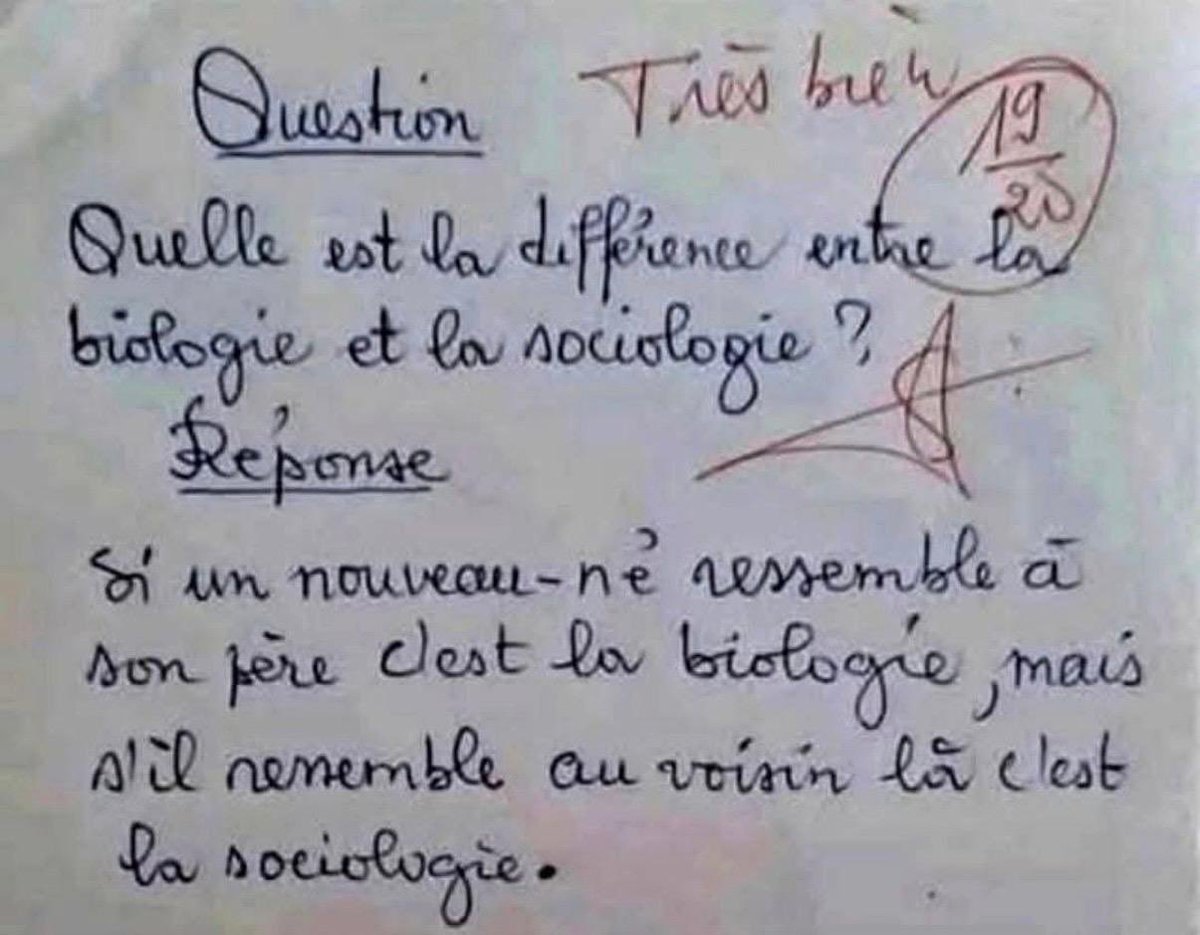 Question
Très bien
19
20
Quelle est la différence entre la
biologie et la sociologie ?
Réponse
Si un nouveau-né ressemble à
son père c'est la biologie, mais
s'il ressemble au voisin là c'est
la sociologie.